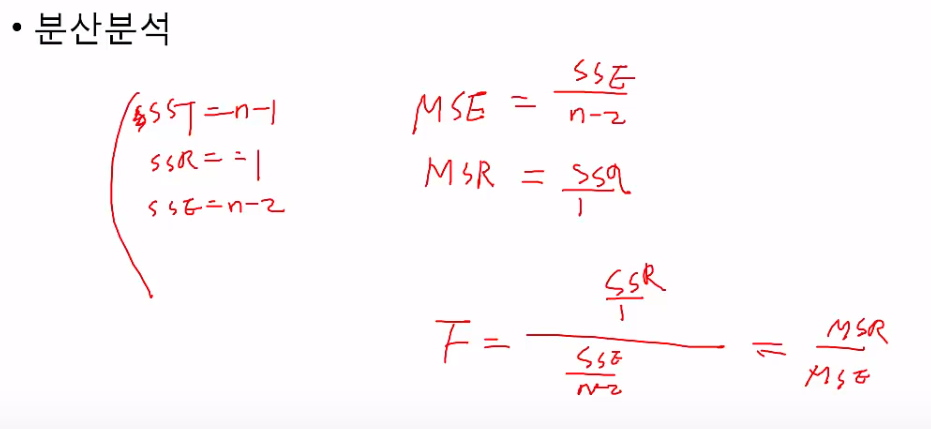 • 분산분석
SST = n-1
SSR = = 1
SSE = n-2
MSE = SSE / n-2
MSR = SSR / 1
F = SSR / 1 / SSE / n-2 = MSR / MSE